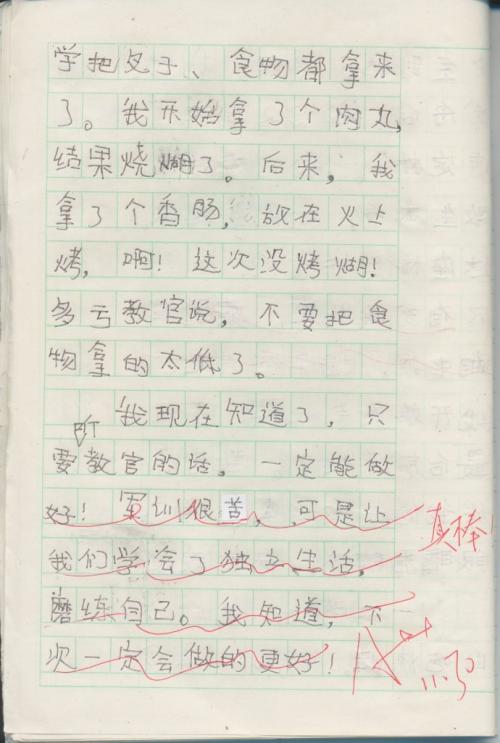 学把叉子、食物都拿来
了。我开始拿了个肉丸,
结果烧煳了。后来,我
拿了个香肠,放在火上
烤,啊!这次没烤煳!
多亏教官说,不要把食
物拿的太低了。
我现在知道了,只
要听教官的话。一定能做
好!军训很苦,可是让
我们学会了独立生活,
磨练自己。我知道,下
次一定会做的更好!
真棒
A++
11.30